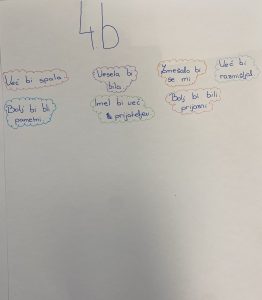 4b
Več bi spala
Vesela bi
bila
Zmešalo bi
se mi
Več bi
razmišljal
Bolj bi bli
pametni
Imel bi več
prijateljev
Bolj bi bili
prijazni